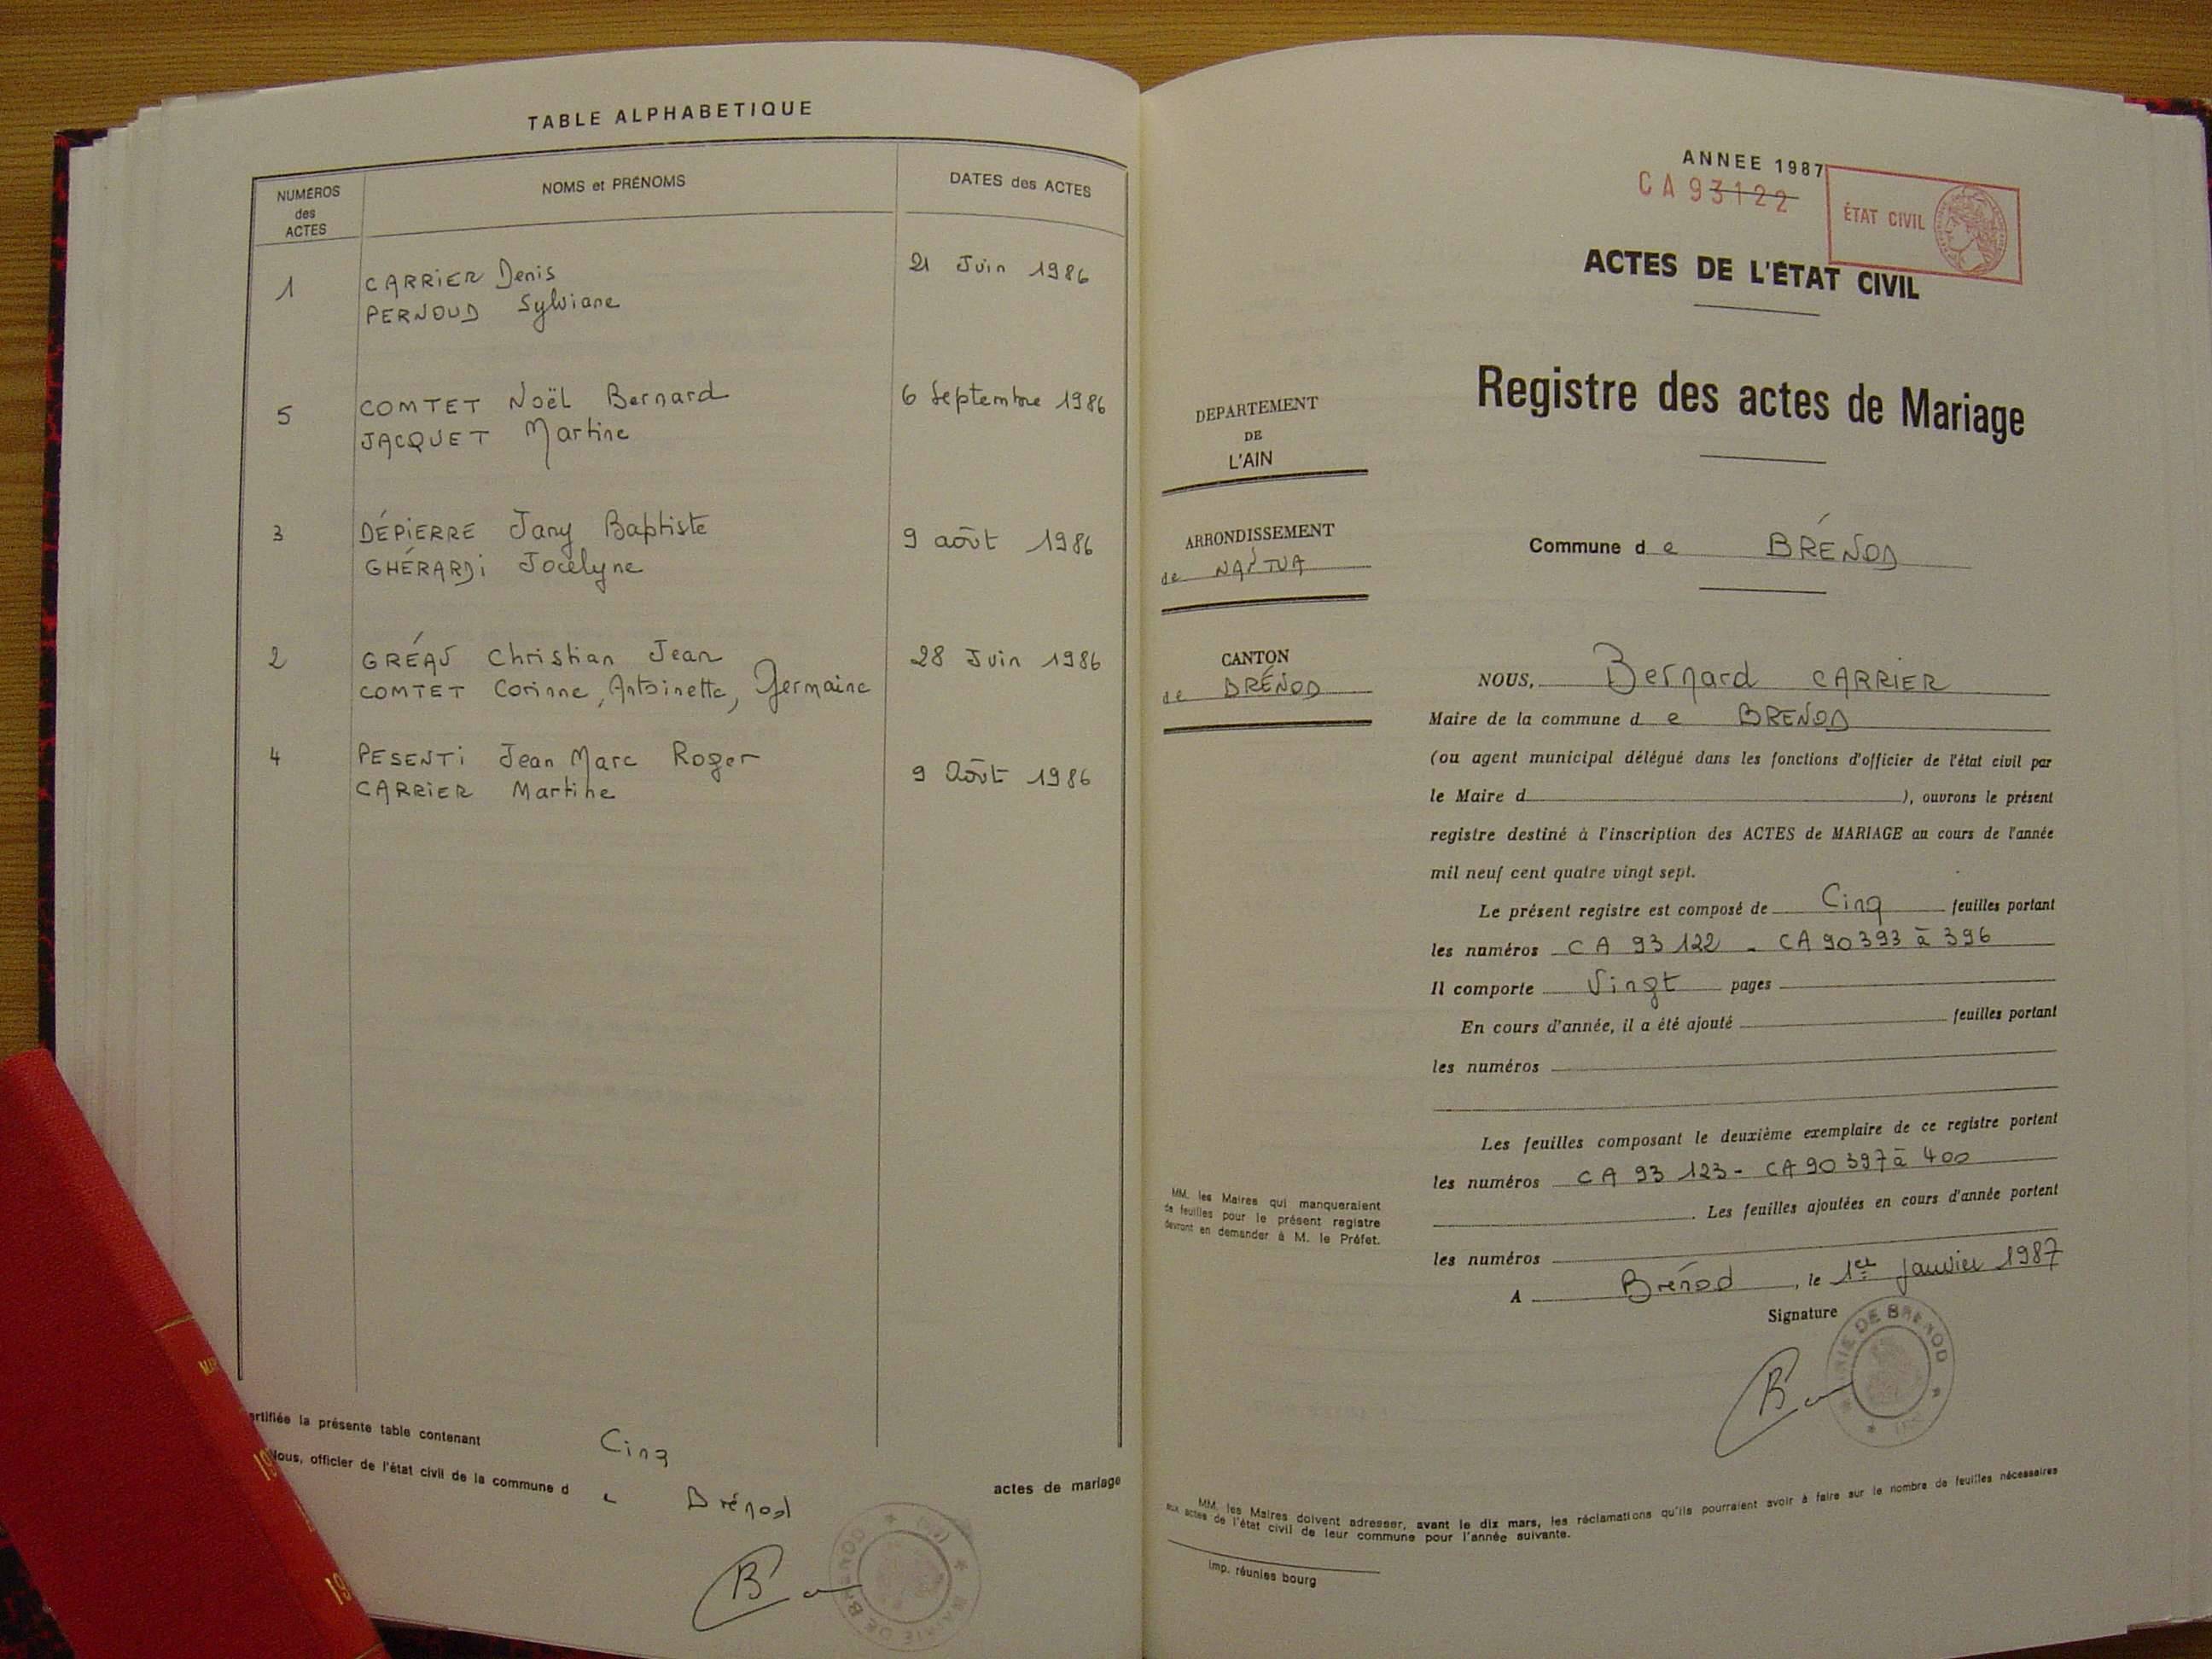 TABLE ALPHABETIQUE
NUMÉROS
des
ACTES
NOMS et PRÉNOMS
DATES des ACTES
1
CARRIER Denis
PERNOUD Sylviane
21 Juin 1986
5
COMTET Noël Bernard
JACQUET Martine
6 Septembre 1986
3
DÉPIERRE Jany Baptiste
GHÉRARDI Jocelyne
9 août 1986
2
GRÉAU Christian Jean
COMTET Corinne, Antoinette, Germaine
28 Juin 1986
4
PESENTI Jean Marc Roger
CARRIER Martine
9 Août 1986
ertifiée la présente table contenant Cinq
actes de mariage
Nous, officier de l'état civil de la commune d e Brénod
MAIRIE DE BRENOD
ANNEE 1987
CA 93122
ÉTAT CIVIL
ACTES DE L'ÉTAT CIVIL
Registre des actes de Mariage
DEPARTEMENT
DE
L'AIN
ARRONDISSEMENT
de NANTUA
Commune d e BRÉNOD
CANTON
de BRÉNOD
NOUS, Bernard CARRIER
Maire de la commune d e BRENOD
(ou agent municipal délégué dans les fonctions d'officier de l'état civil par
le Maire d ), ouvrons le présent
registre destiné à l'inscription des ACTES de MARIAGE au cours de l'année
mil neuf cent quatre vingt sept.
Le présent registre est composé de Cinq feuilles portant
les numéros CA 93 122 - CA 90393 à 396
Il comporte Vingt pages
En cours d'année, il a été ajouté feuilles portant
les numéros
Les feuilles composant le deuxième exemplaire de ce registre portent
les numéros CA 93 123 - CA 90 397 à 400
. Les feuilles ajoutées en cours d'année portent
les numéros
A Brénod , le 1er janvier 1987
Signature
MAIRIE DE BRENOD
MM. les Maires qui manqueraient
de feuilles pour le présent registre
devront en demander à M. le Préfet.
MM. les Maires doivent adresser, avant le dix mars, les réclamations qu'ils pourraient avoir à faire sur le nombre de feuilles nécessaires
aux actes de l'état civil de leur commune pour l'année suivante.
Imp. réunies bourg